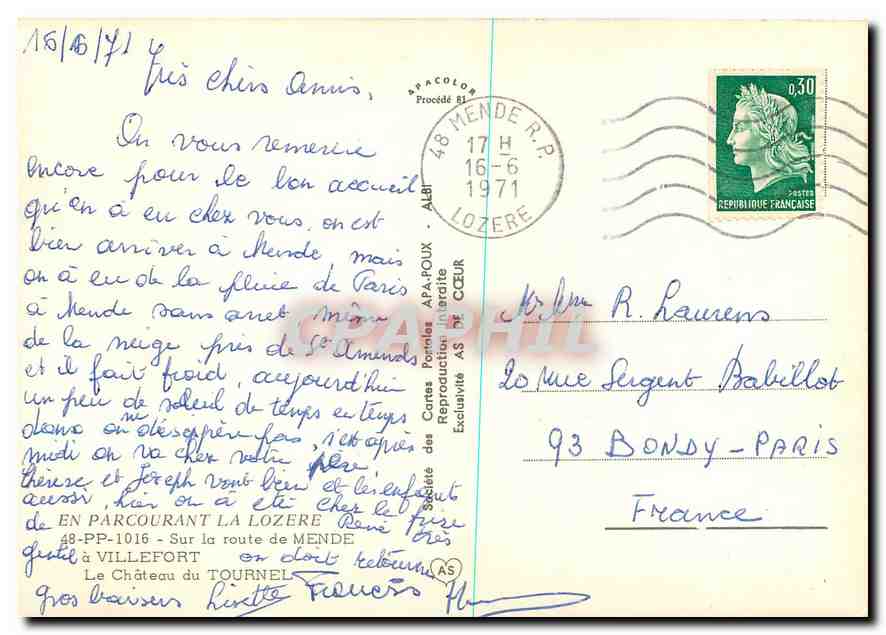 16/6/71
Très chers Amis,
On vous remercie
encore pour le bon accueil
qu'on à eu chez vous, on est
bien arriver à Mende, mais
on à eu de la pluie de Paris
à Mende sans arret même
de la neige près de St Amends
et il fait froid, aujourd'hui
un peu de soleil de temps en temps
donc on ne désespère pas, cet après
midi on va chez votre père,
thérèse et Joseph vont bien et les enfants
aussi, hier on à eté chez le
de René très
gentil on doit retourner
gros baisers Lisette Francis
EN PARCOURANT LA LOZERE
48-PP-1016 - Sur la route de MENDE
à VILLEFORT
Le Château du TOURNEL
APACOLOR
Procédé 81
Société des Cartes Postales APA-POUX - ALBI
Reproduction Interdite
Exclusivité AS DE CŒUR
AS
48 MENDE R.P.
17 H
16-6
1971
LOZERE
0,30
POSTES
REPUBLIQUE FRANÇAISE
Mr Mme R. Laurens
20 rue Sergent Bobillot
93 BONDY-PARIS
France
CPAPHIL